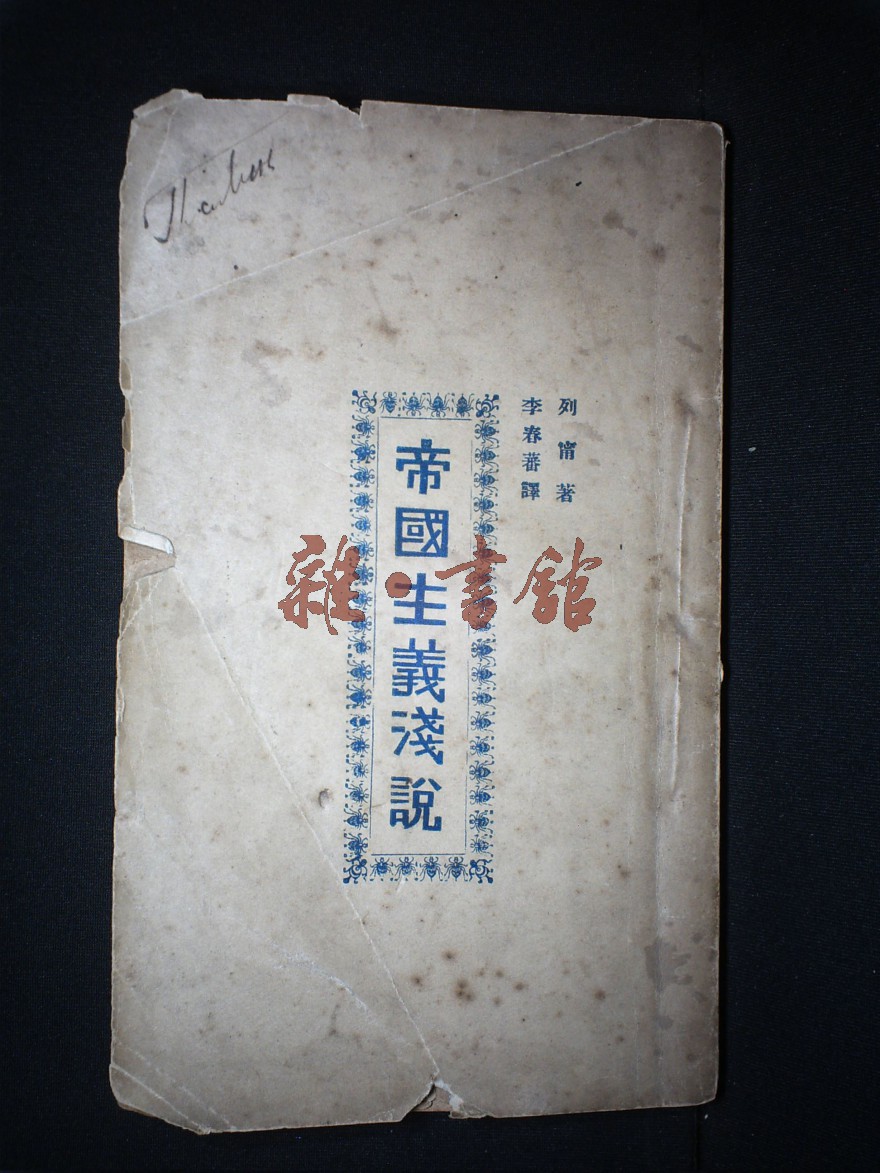 列甯著
李春蕃譯
帝國主義淺說
雜·書館